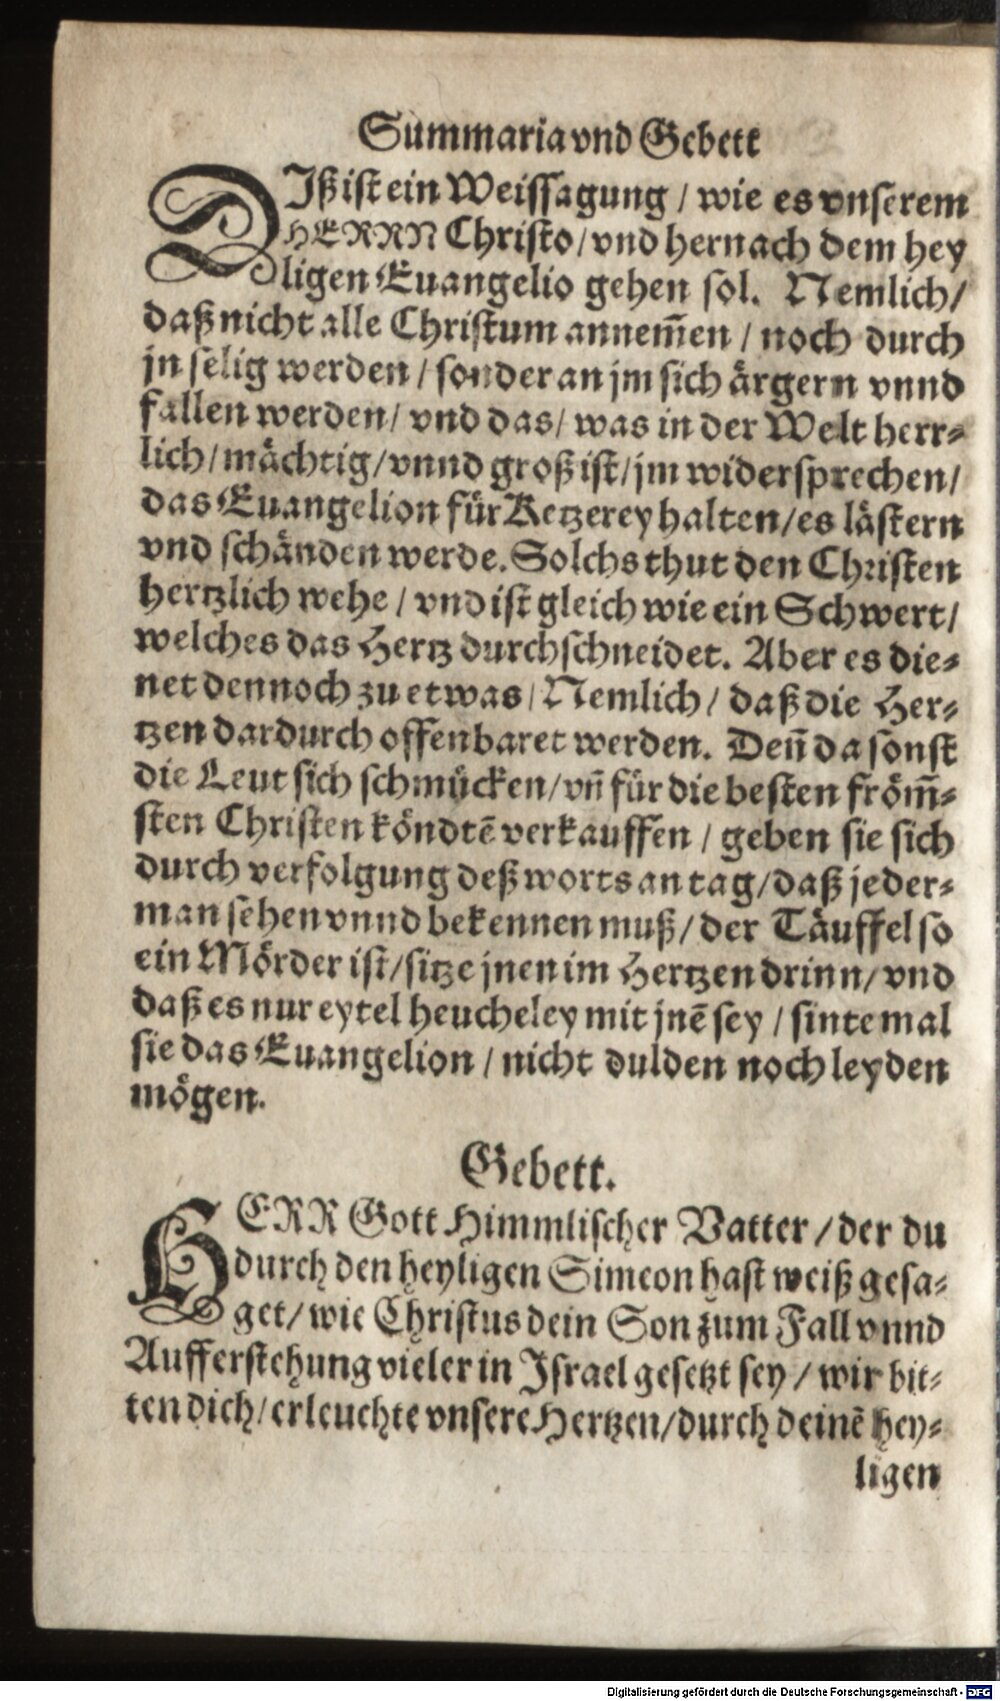 Summaria vnd Gebett
DIß ist ein Weissagung / wie es vnserem
HERRN Christo / vnd hernach dem hey
ligen Euangelio gehen sol. Nemlich /
daß nicht alle Christum annem̃en / noch durch
jn selig werden / sonder an jm sich ärgern vnnd
fallen werden / vnd das / was in der Welt herr-
lich / mächtig / vnnd groß ist / jm widersprechen /
das Euangelion für Ketzerey halten / es lästern
vnd schänden werde. Solchs thut den Christen
hertzlich wehe / vnd ist gleich wie ein Schwert /
welches das Hertz durchschneidet. Aber es die-
net dennoch zu etwas / Nemlich / daß die Her-
tzen dardurch offenbaret werden. Deñ da sonst
die Leut sich schmücken / vñ für die besten fröm̃-
sten Christen köndtẽ verkauffen / geben sie sich
durch verfolgung deß worts an tag / daß jeder-
man sehen vnnd bekennen muß / der Täuffel so
ein Mörder ist / sitze jnen im Hertzen drinn / vnd
daß es nur eytel heucheley mit jnẽ sey / sintemal
sie das Euangelion / nicht dulden noch leyden
mögen.
Gebett.
HERR Gott Himmlischer Vatter / der du
durch den heyligen Simeon hast weiß gesa-
get / wie Christus dein Son zum Fall vnnd
Aufferstehung vieler in Israel gesetzt sey / wir bit-
ten dich / erleuchte vnsere Hertzen / durch deinẽ hey-
ligen
Digitalisierung gefördert durch die Deutsche Forschungsgemeinschaft - DFG